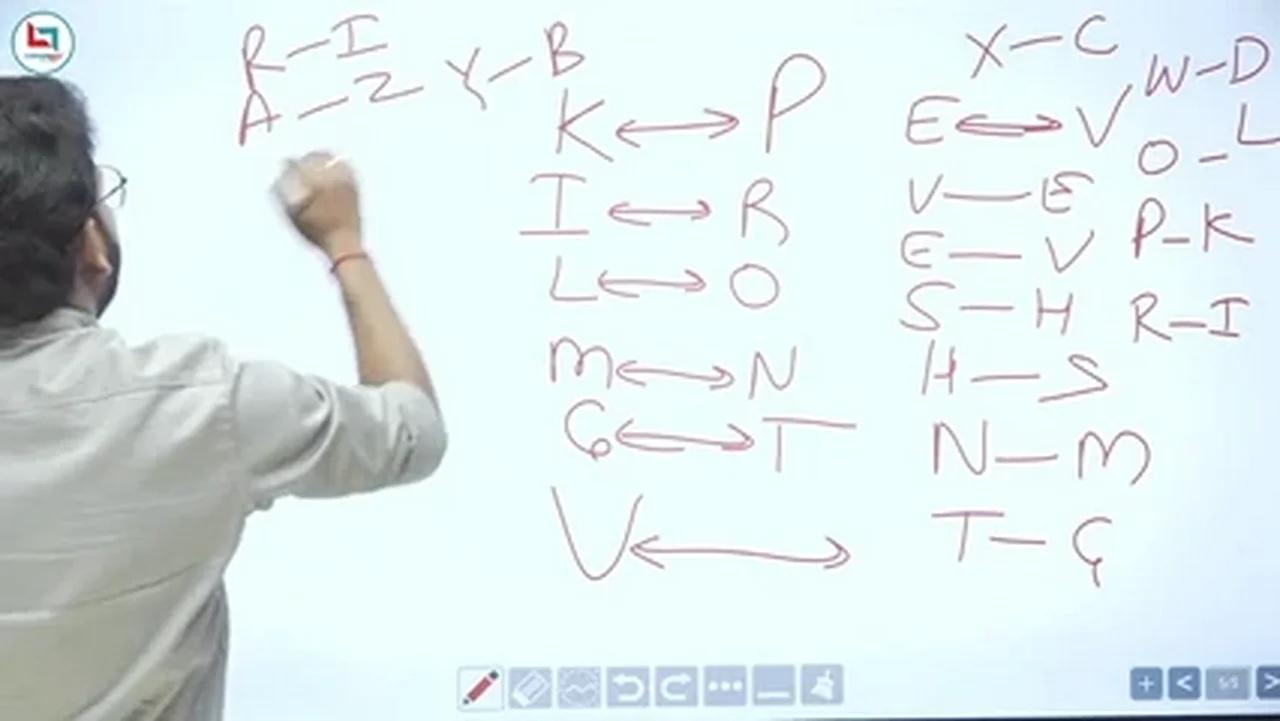 R - I
A - Z
Y - B
K ↔ P
I ↔ R
L ↔ O
M ↔ N
G ↔ T
V ↔
X - C
W - D
E ↔ V
O - L
V - E
P - K
E - V
S - H
R - I
H - S
N - M
T - G
5/5